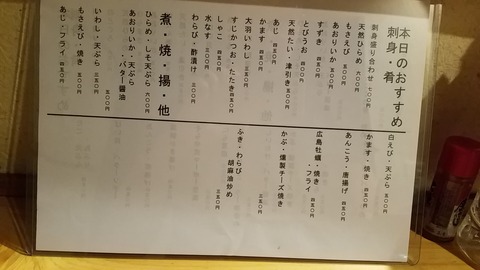 本日のおすすめ
刺身・肴
刺身盛り合わせ 七〇〇円
天然ひらめ 六〇〇円
もさえび 五〇〇円
あおりいか 五〇〇円
すずき 四五〇円
とびうお 四五〇円
天然たい・津引き 五〇〇円
あじ 四五〇円
かます 四五〇円
大羽いわし 三五〇円
すじかつお・たたき 四五〇円
しゃこ 四五〇円
水なす 三〇〇円
わらび・酢漬け 三〇〇円
煮・焼・揚・他
ひらめ・しそ天ぷら 六〇〇円
あおりいか・天ぷら
・バター醤油 五〇〇円
いわし・天ぷら 三五〇円
もさえび・焼き 五〇〇円
あじ・フライ 四五〇円
白えび・天ぷら 五〇〇円
かます・焼き 四五〇円
あんこう・唐揚げ 四五〇円
広島牡蠣・焼き
・フライ 四五〇円
かぶ・燻製チーズ焼き 三五〇円
ふき・わらび
胡麻油炒め 三五〇円